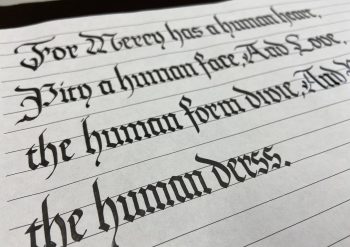 For Mercy has a human heart,
Pity a human face, And Love,
the human form divie, And
the human derss.